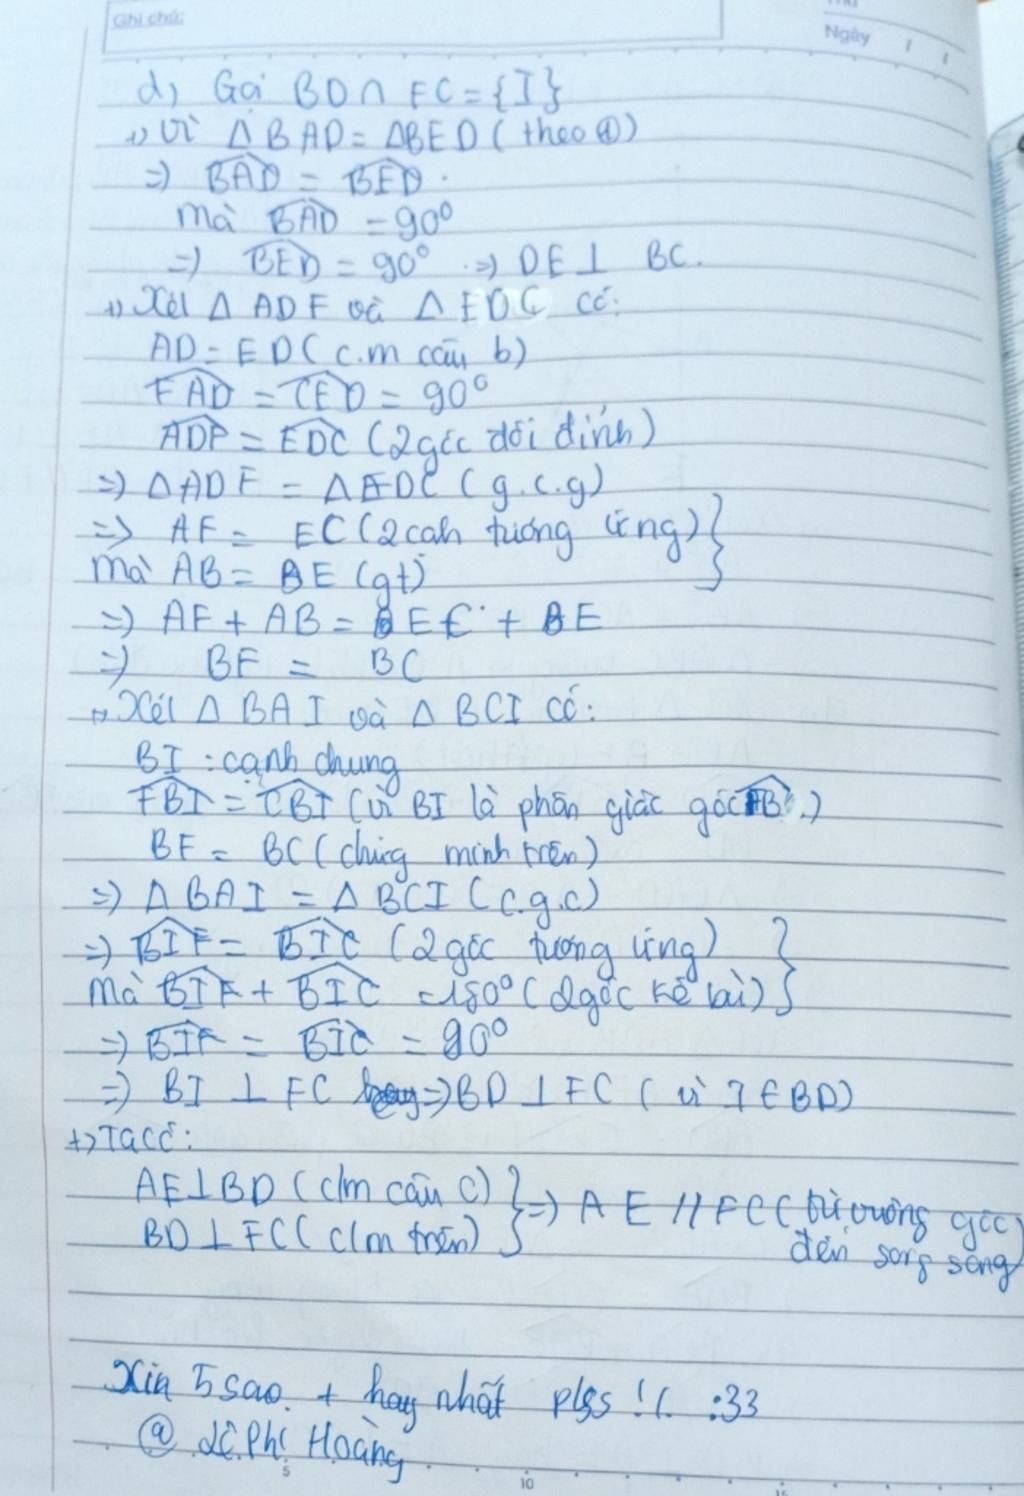 Ghi chú:
Ngày / /
d) Gọi BD ∩ FC = {I}
+) Vì △BAD = △BED (theo ①)
=> BAD^ = BED^.
Mà BAD^ = 90°
=> BED^ = 90° => DE ⊥ BC.
+) Xét △ ADF và △ EDC có:
AD = ED (c.m câu b)
FAD^ = CED^ = 90°
ADF^ = EDC^ (2 góc đối đỉnh)
=> △ADF = △EDC (g.c.g)
=> AF = EC (2 cạh tương ứng) }
Mà AB = BE (gt)
=> AF + AB = EC + BE
=> BF = BC
+) Xét △ BAI và △ BCI có:
BI : cạnh chung
FBI^ = CBI^ (vì BI là phân giác góc FB .)
BF = BC (chứng minh trên)
=> △BAI = △BCI (c.g.c)
=> BIF^ = BIC^ (2 góc tương ứng) }
Mà BIF^ + BIC^ = 180° (2 góc kề bù)
=> BIF^ = BIC^ = 90°
=> BI ⊥ FC => BD ⊥ FC ( vì I ∈ BD)
+) Ta có:
AE ⊥ BD (c/m câu c) } => AE // FC (từ vuông góc
BD ⊥ FC (c/m trên) đến song song)
Xin 5 sao + hay nhất plss !! :33
@ Lê Phi Hoàng
5 10 15